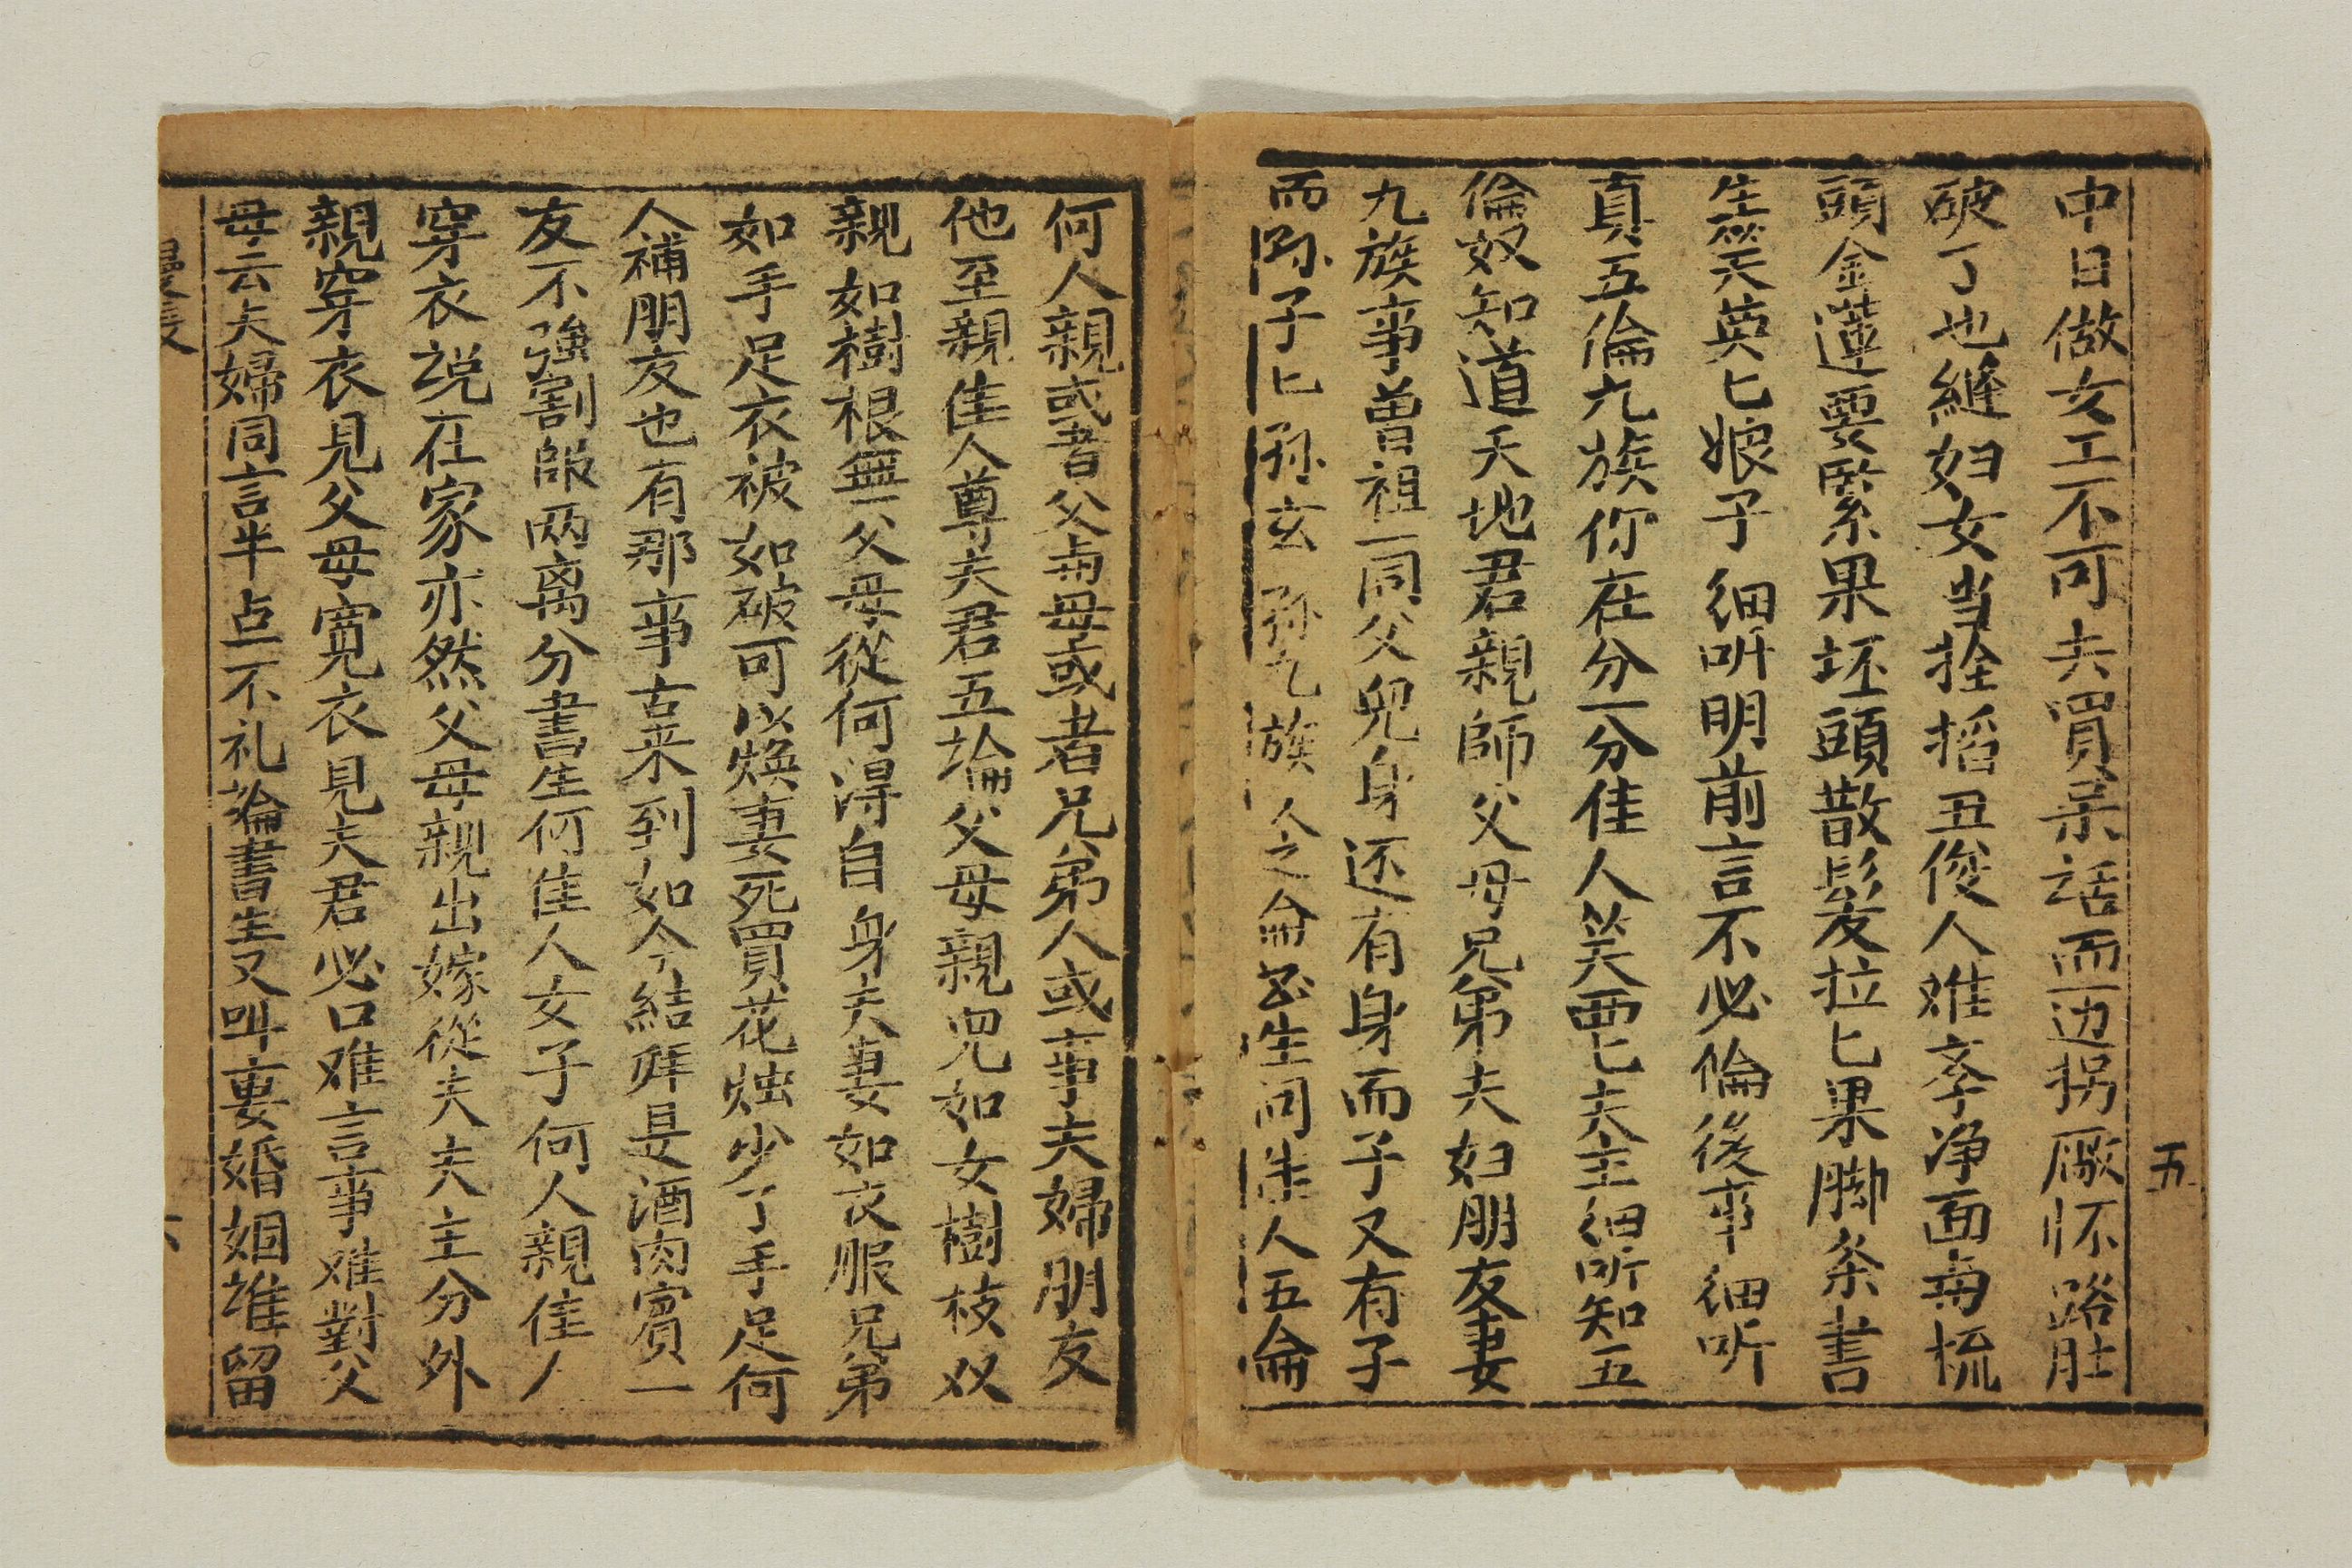 中日做女工不可夫買呆話而边拐厰怀路肚
破了也縫妇女当拴揺丑俊人难孝净面再梳
頭金蓮要緊果坯頭散髪拉匕果脚条書
生笑英匕娘子細听明前言不必倫後事細听
真五倫九族你在分一分佳人笑要匕夫主細听知五
倫奴知道天地君親師父母兄弟夫妇朋友妻
九族事曽祖一同父兜身还有身而子又有子
而孫子匕孫玄孫九族人之侖書生问佳人五侖
五
何人親或者父与母或者兄弟人或事夫婦朋友
他至親佳人尊夫君五論父母親児如女樹枝奴
親如樹根無父母從何淂自身夫妻如衣服兄弟
如手足衣被如破可以焕妻死買花烛少了手足何
人補朋友也有那事古来到如今結拜是酒肉賓一
友不強割郎两离分書生何佳人女子何人親佳人
穿衣说在家亦然父母親出嫁從夫夫主分外
親穿衣見父母寛衣見夫君必口难言事难對父
母云夫婦同言半点不礼論書生又叫妻婚姻誰留